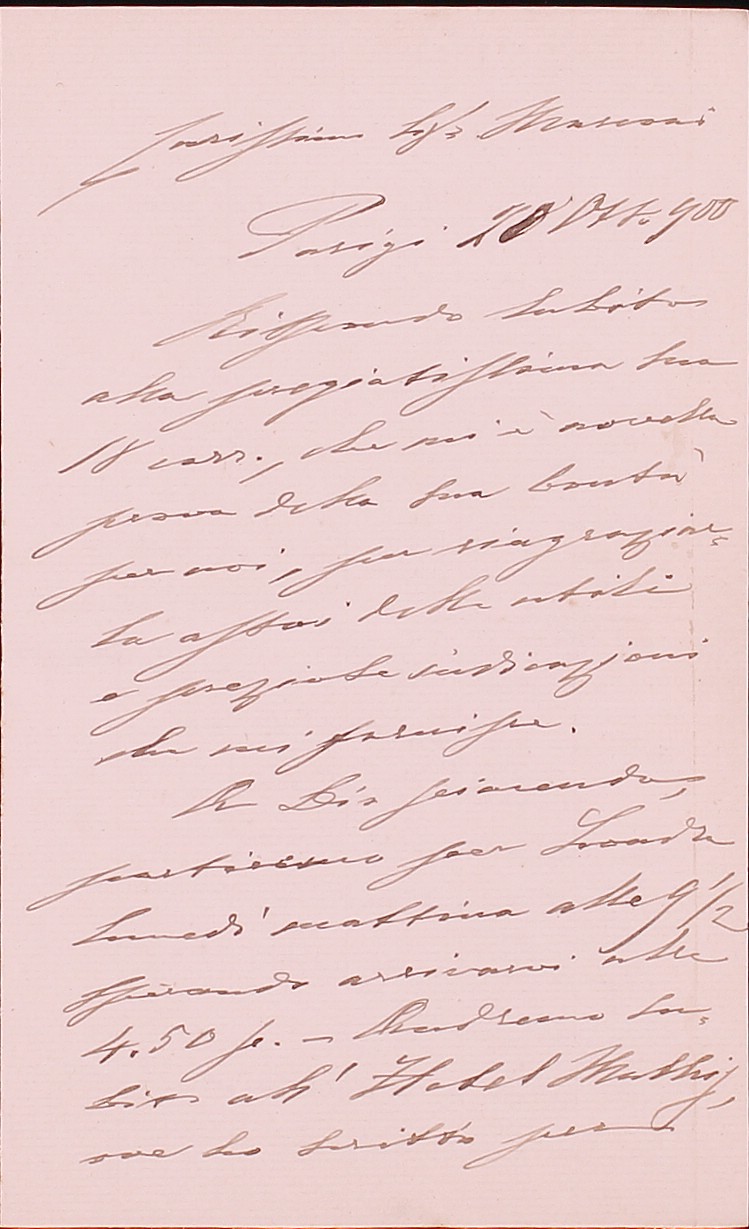 Carissimo Sig.r Mascani
Parigi 20 Ott. 900
Rispondo subito
alla pregiatissima sua
18 corr., che mi è novella
prova della sua bontà
per noi, per ringraziar-
la assai delle utili
e preziose indicazioni
che mi fornisce.
A Dio piacendo,
partiremo per Londra
lunedì mattina alle 9 1/2
sperando arrivarvi alle
4.50 p. — Andremo su-
bito all' Hotel
ove ho scritto per